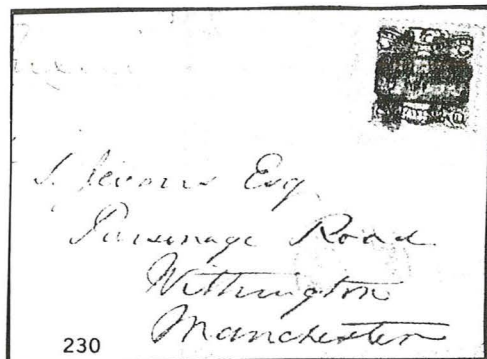 S. Jevons Esq.
Parsonage Road
Withington
Manchester
230